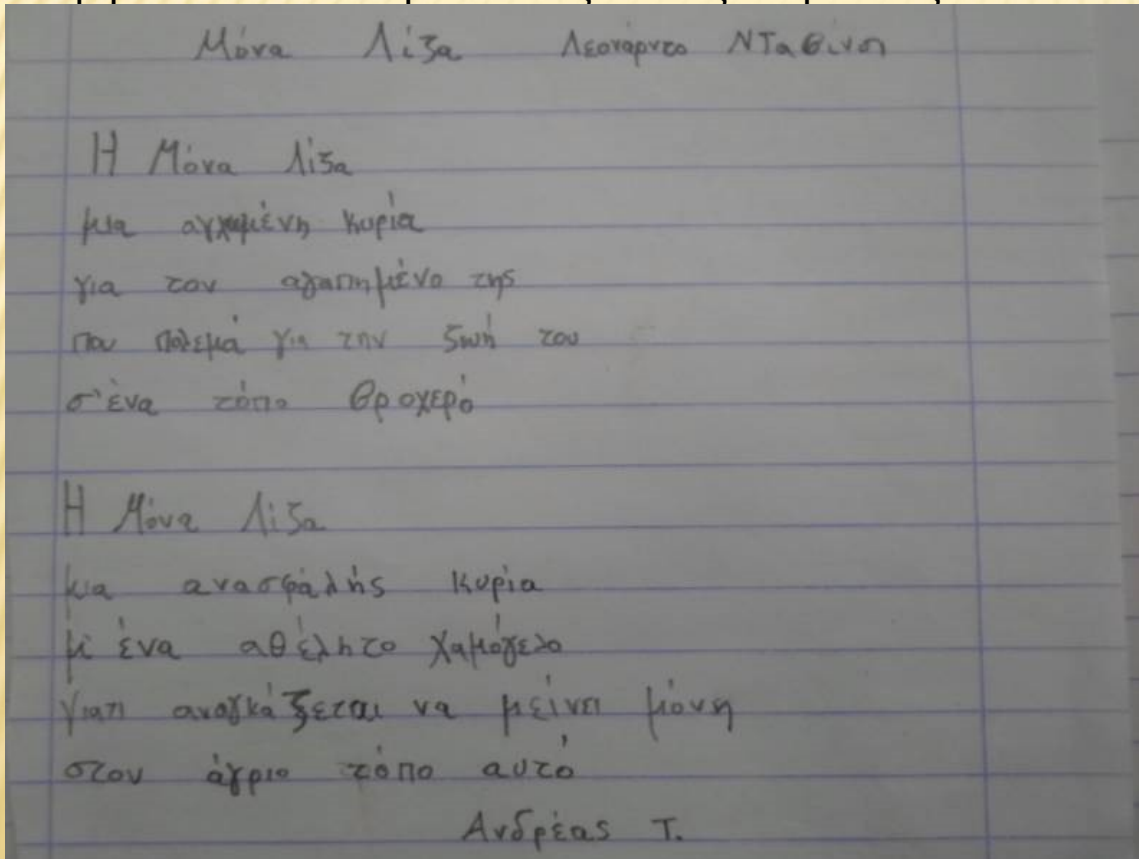 Μόνα Λίζα Λεονάρντο ΝΤα Βίνση
Η Μόνα Λίζα
μια αγχωμένη κυρία
για τον αγαπημένο της
που πολεμά για την ζωή του
σ'ένα τόπο βροχερό
Η Μόνα Λίζα
μια ανασφάλής κυρία
μ' ένα αθέλητο χαμόγελο
γιατι αναγκάζεται να μείνει μόνη
στον άγριο τόπο αυτό
Ανδρέας Τ.